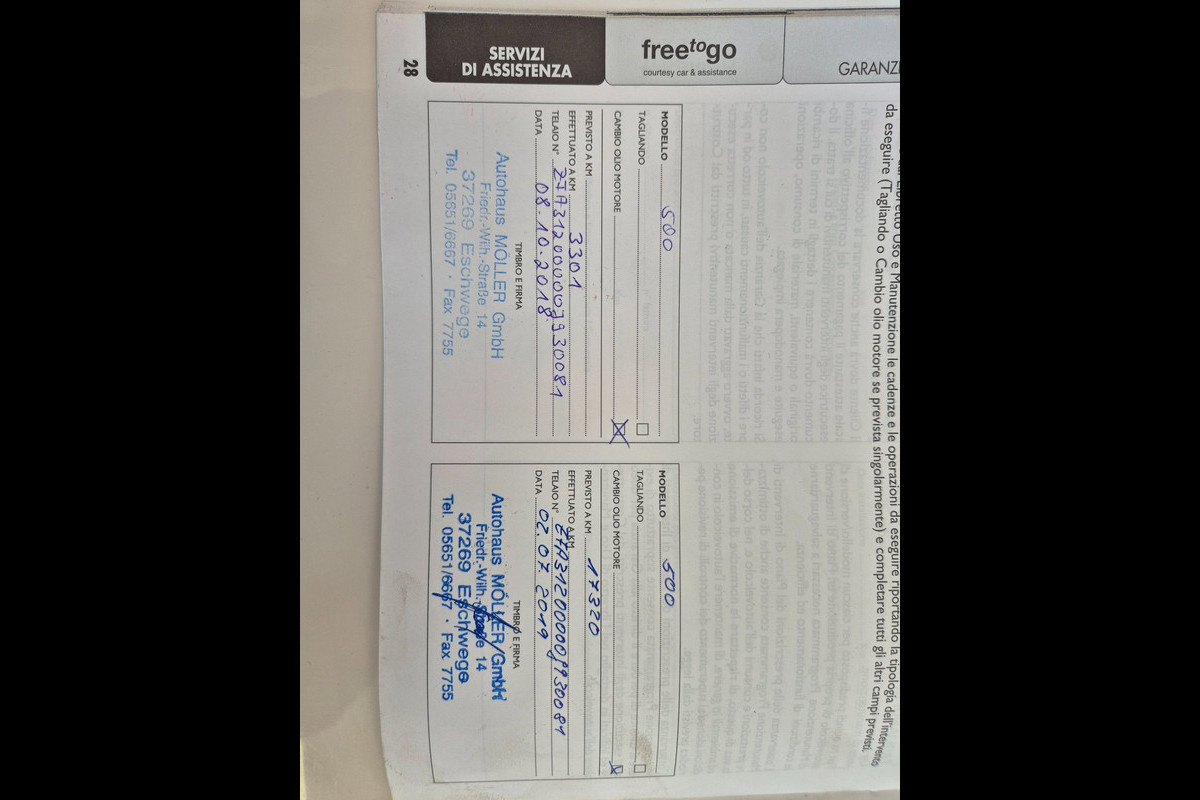 GARANZI
freetogo
courtesy car & assistance
SERVIZI
DI ASSISTENZA
28
Libretto Uso e Manutenzione le cadenze e le operazioni da eseguire riportando la tipologia dell'intervento
da eseguire (Tagliando o Cambio olio motore se prevista singolarmente) e completare tutti gli altri campi previsti.
MODELLO 500
TAGLIANDO
CAMBIO OLIO MOTORE
PREVISTO A KM
EFFETTUATO A KM 3301
TELAIO N°
DATA 08.10.2018
TIMBRO E FIRMA
Autohaus MÖLLER GmbH
Friedr.-Wilh.-Straße 14
37269 Eschwege
Tel. 05651/6667 · Fax 7755
MODELLO 500
TAGLIANDO
CAMBIO OLIO MOTORE
PREVISTO A KM 17320
EFFETTUATO A KM
TELAIO N°
DATA 02.07.2019
TIMBRO E FIRMA
Autohaus MÖLLER GmbH
Friedr.-Wilh.-Straße 14
37269 Eschwege
Tel. 05651/6667 · Fax 7755